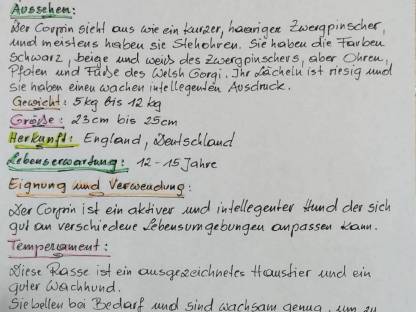 Aussehen:
Der Corpin sieht aus wie ein kurzer, haariger Zwergpinscher,
und meistens haben sie Stehohren. Sie haben die Farben
Schwarz, beige und weiß des Zwergpinschers, aber Ohren,
Pfoten und Füße des Welsh Gorgi. Ihr Lächeln ist riesig und
Sie haben einen wachen intellegenten Ausdruck.
Gewicht: 5kg bis 12 kg
Größe: 23cm bis 25cm
Herkunft: England, Deutschland
Lebenserwartung: 12-15 Jahre
Eignung und Verwendung:
Der Corpin ist ein aktiver und intellegenter Hund der sich
gut an verschiedene Lebensumgebungen anpassen kann.
Temperament:
Diese Rasse ist ein ausgezeichnetes Haustier und ein
guter Wachhund.
Sie bellen bei Bedarf und sind wachsam genug, um zu